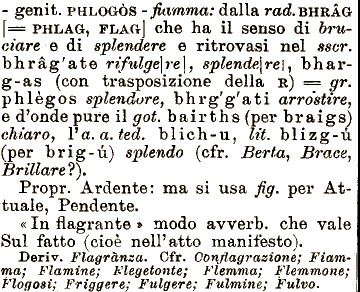 - genit. PHLOGÒS - fiamma: dalla rad. BHRÂG
[= PHLAG, FLAG] che ha il senso di bru-
ciare e di splendere e ritrovasi nel sscr.
bhrâg'ate rifulge[re], splende[re], bhar-
g-as (con trasposizione della R) = gr.
phlègos splendore, bhrg'g'ati arrostire,
e d'onde pure il got. bairths (per braigs)
chiaro, l'a. a. ted. blich-u, lit. blizg-ú
(per brig-ú) splendo (cfr. Berta, Brace,
Brillare?).
Propr. Ardente: ma si usa fig. per At-
tuale, Pendente.
« In flagrante » modo avverb. che vale
Sul fatto (cioè nell'atto manifesto).
Deriv. Flagrànza. Cfr. Conflagrazione; Fiam-
ma; Flamine; Flegetonte; Flemma; Flemmone;
Flogosi; Friggere; Fulgere; Fulmine; Fulvo.